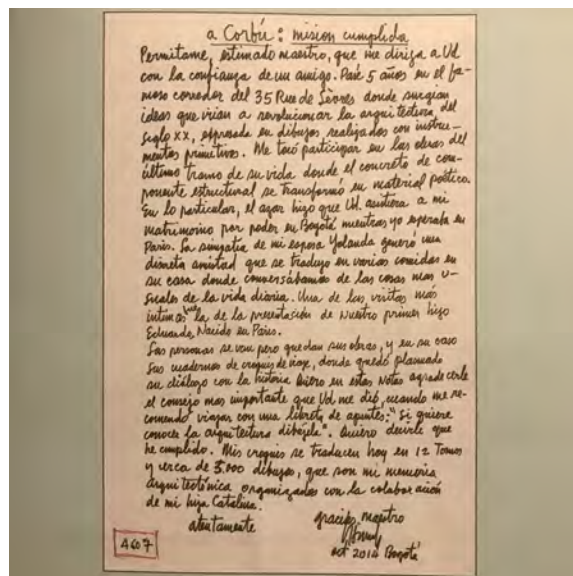 a Corbú: mision cumplida
Permitame, estimado maestro, que me dirija a Ud
con la confianza de un amigo. Pasé 5 años en el fa-
moso corredor del 35 Rue de Sèvres donde surgían
ideas que irian a revolucionar la arquitectura del
siglo XX, expresada en dibujos realizados con instru-
mentos primitivos. Me tocó participar en las obras del
último tramo de su vida donde el concreto de com-
ponente estructural se transformó en material poético.
En lo particular, el azar hizo que Ud. asistiera a mi
matrimonio por poder en Bogotá mientras yo esperaba en
Paris. La simpatia de mi esposa Yolanda generó una
discreta amistad que se tradujo en varias comidas en
su casa donde conversábamos de las cosas mas u-
suales de la vida diaria. Una de las visitas más
intimas fue la de la presentación de nuestro primer hijo
Eduardo, Nacido en Paris.
Las personas se van pero quedan sus obras, y en su caso
sus cuadernos de croquis de viaje, donde quedó plasmado
su diálogo con la historia Quiero en estas Notas agradecerle
el consejo mas importante que Ud me dió, cuando me re-
comendó viajar con una libreta de apuntes: "Si quiere
conocer la arquitectura dibújela". Quiero decirle que
he cumplido. Mis croquis se traducen hoy en 12 Tomos
y cerca de 5.000 dibujos, que son mi memoria
arquitectónica organizados con la colaboración
de mi hija Catalina.
atentamente gracias, maestro
oct 2014 Bogotá
4607